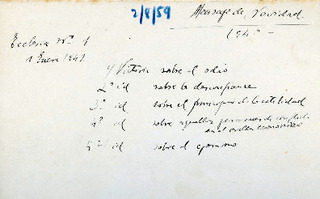 2/8/59
Mensaje de Navidad
194
Ecclesia nº 1
1 Enero 1941
1ª Victoria sobre el odio
2ª id sobre la desconfianza
3ª id sobre el principio de la utilidad
4ª id sobre aquellos
en el orden económico
5ª id sobre el egoismo